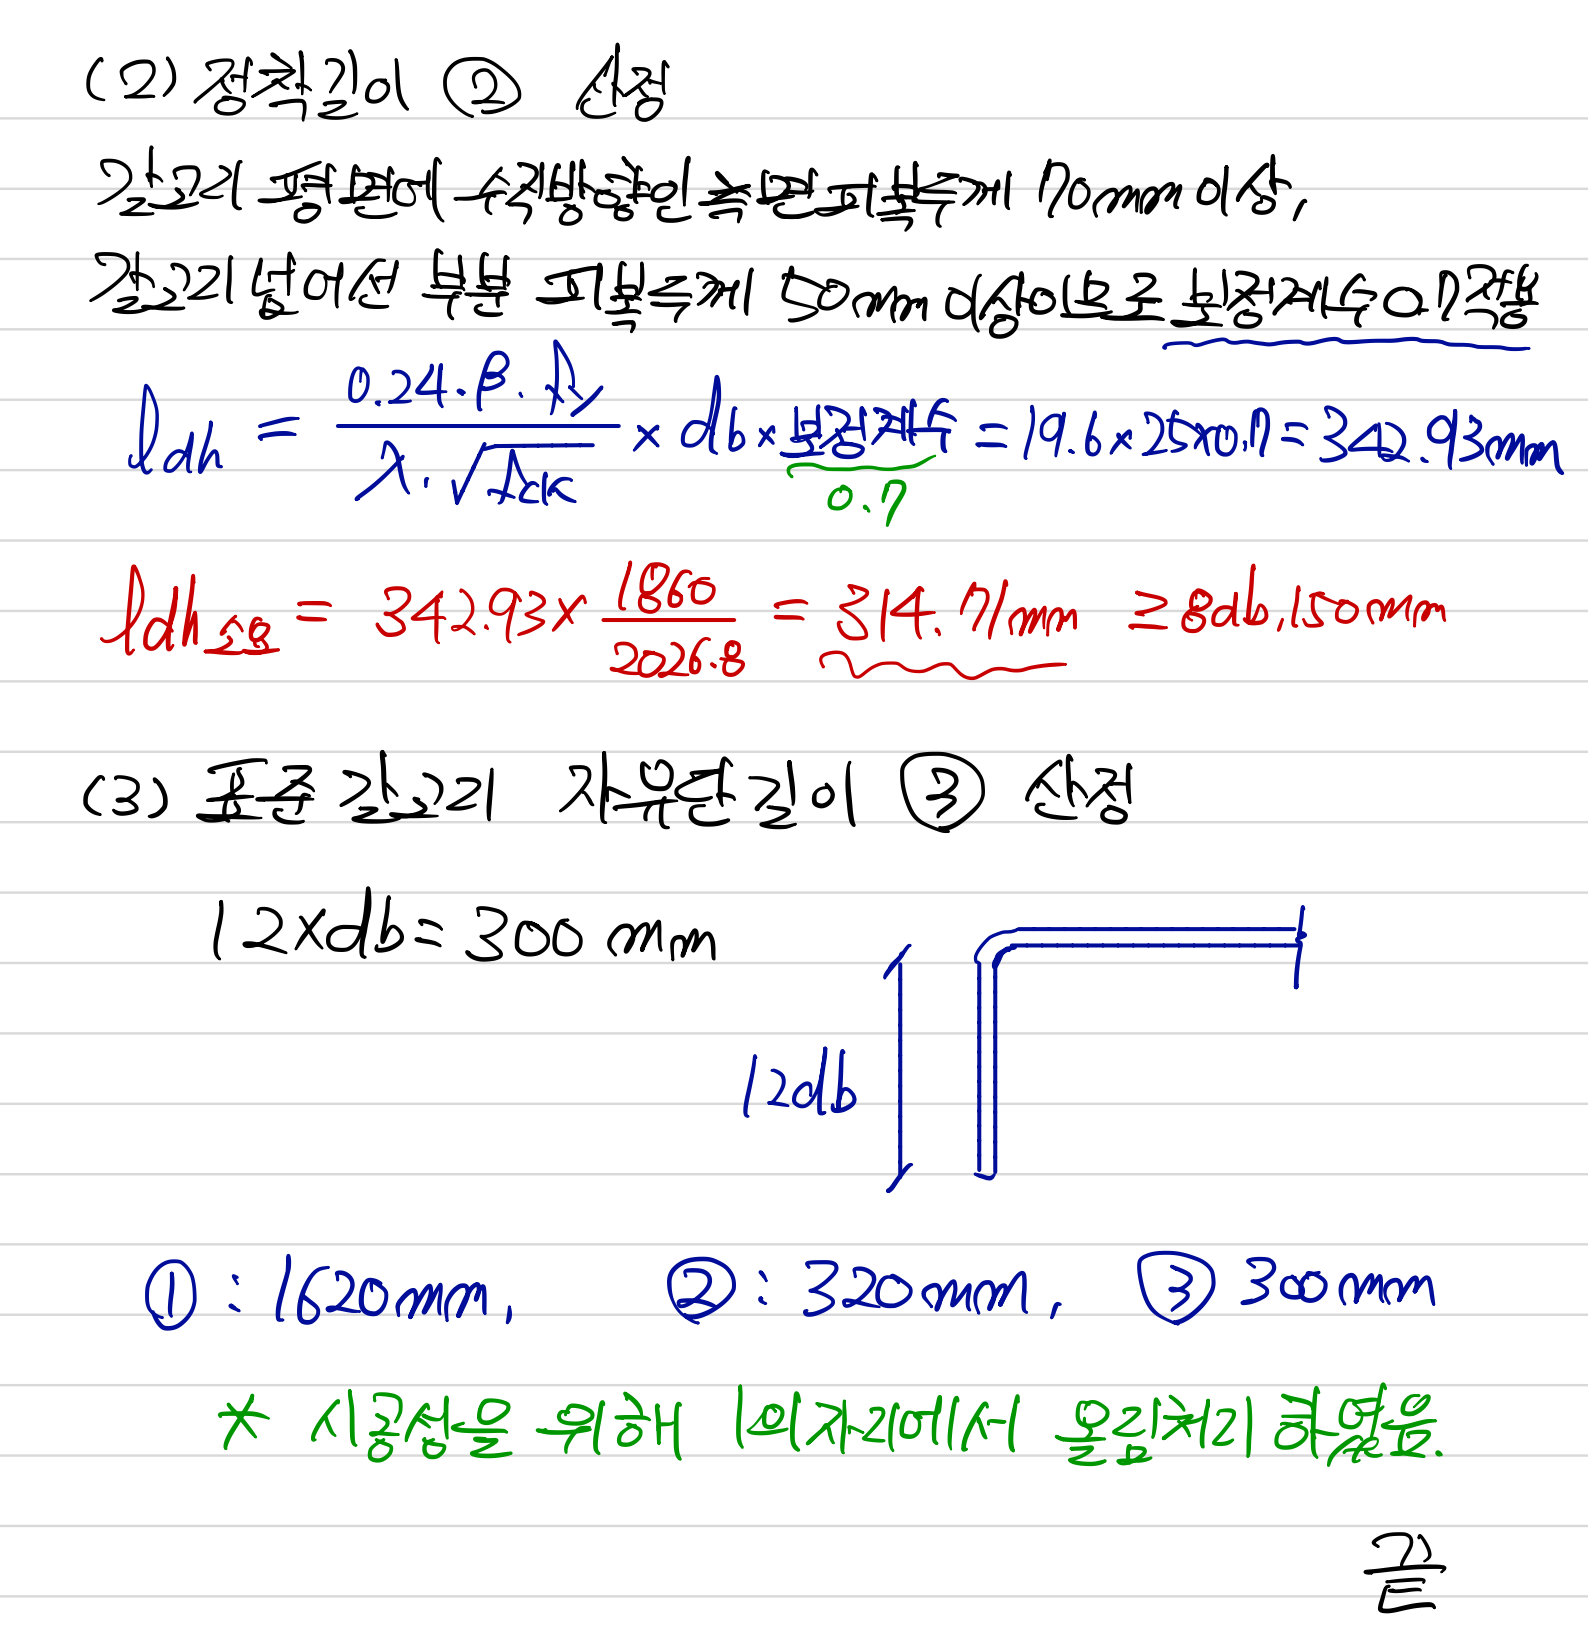 (2) 정착길이 ② 산정
갈고리 평면에 수직방향인 측면피복두께 70mm 이상,
갈고리 넘어선 부분 피복두께 50mm 이상이므로 보정계수 0.7적용
ldh = 0.24·β·fy / λ·√fck × db × 보정계수 = 19.6×25×0.7 = 342.93mm
0.7
ldh소요 = 342.93 × 1860/2026.8 = 314.71mm ≥ 8db, 150mm
(3) 표준갈고리 자유단길이 ③ 산정
12×db = 300 mm
12db
① : 1620mm, ② : 320mm, ③ 300mm
* 시공성을 위해 1의자리에서 올림처리 하였음.
끝